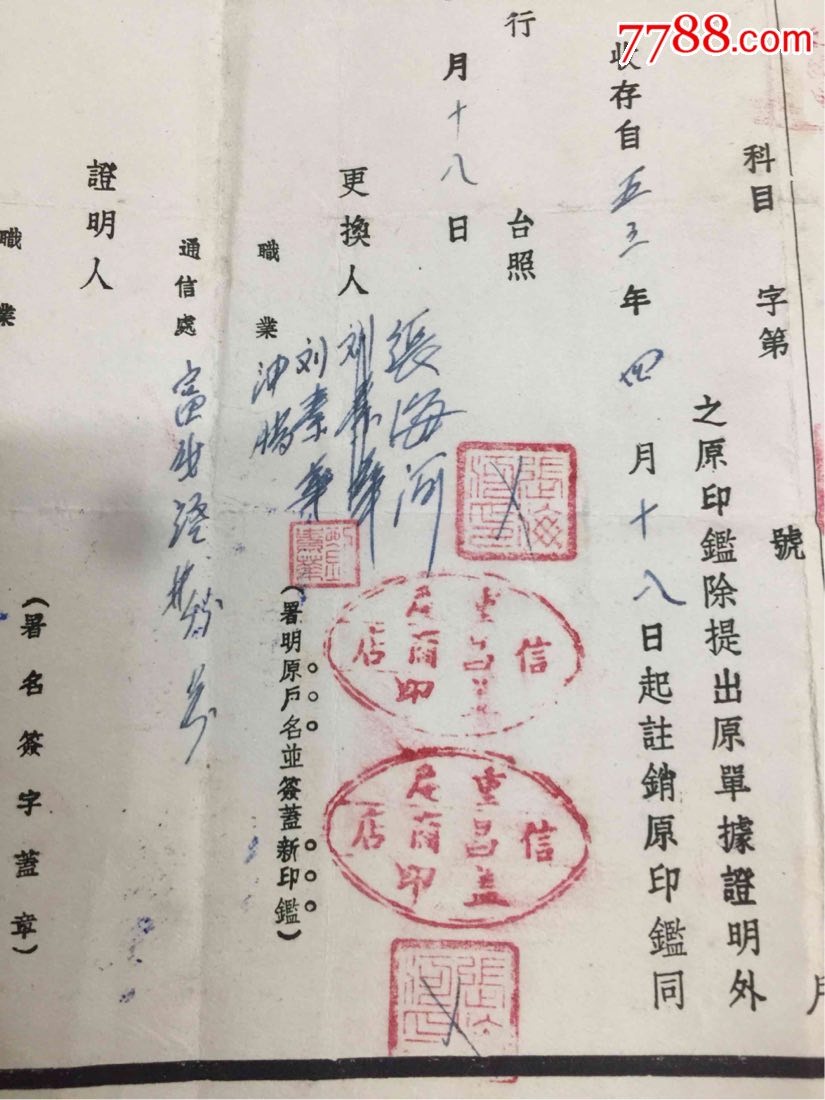 7788.com
科目 字第 號
之原印鑑除提出原單據證明外
收存自五三年四月十八日起註銷原印鑑同
行 台照
月十八日
張海河
更換人 刘素華
刘素華
(署明原戶名並簽蓋新印鑑)
職業
通信處
證明人
(署名簽字蓋章)
職業
信
重昌盖
尼商印
店
信
重昌盖
尼商印
店
月